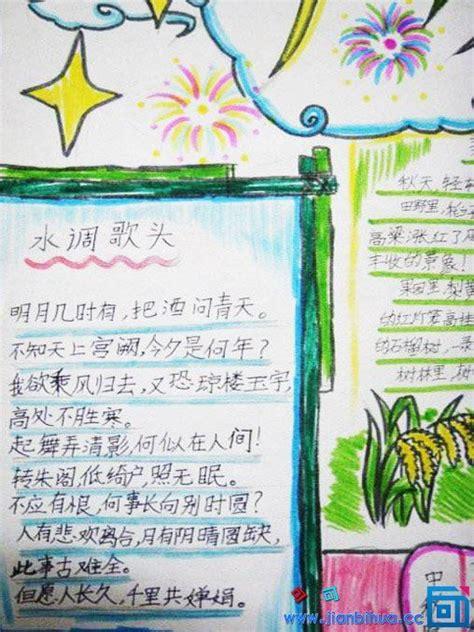 水调歌头
明月几时有，把酒问青天。
不知天上宫阙，今夕是何年？
我欲乘风归去，又恐琼楼玉宇，
高处不胜寒。
起舞弄清影，何似在人间！
转朱阁，低绮户，照无眠。
不应有恨，何事长向别时圆？
人有悲欢离合，月有阴晴圆缺，
此事古难全。
但愿人长久，千里共婵娟。
秋天，轻
田野里，
高粱涨红了
丰收的景象！
果园里，梨
的红灯笼高挂
的石榴树，一
树林里，
中
www.jianbihua.cc